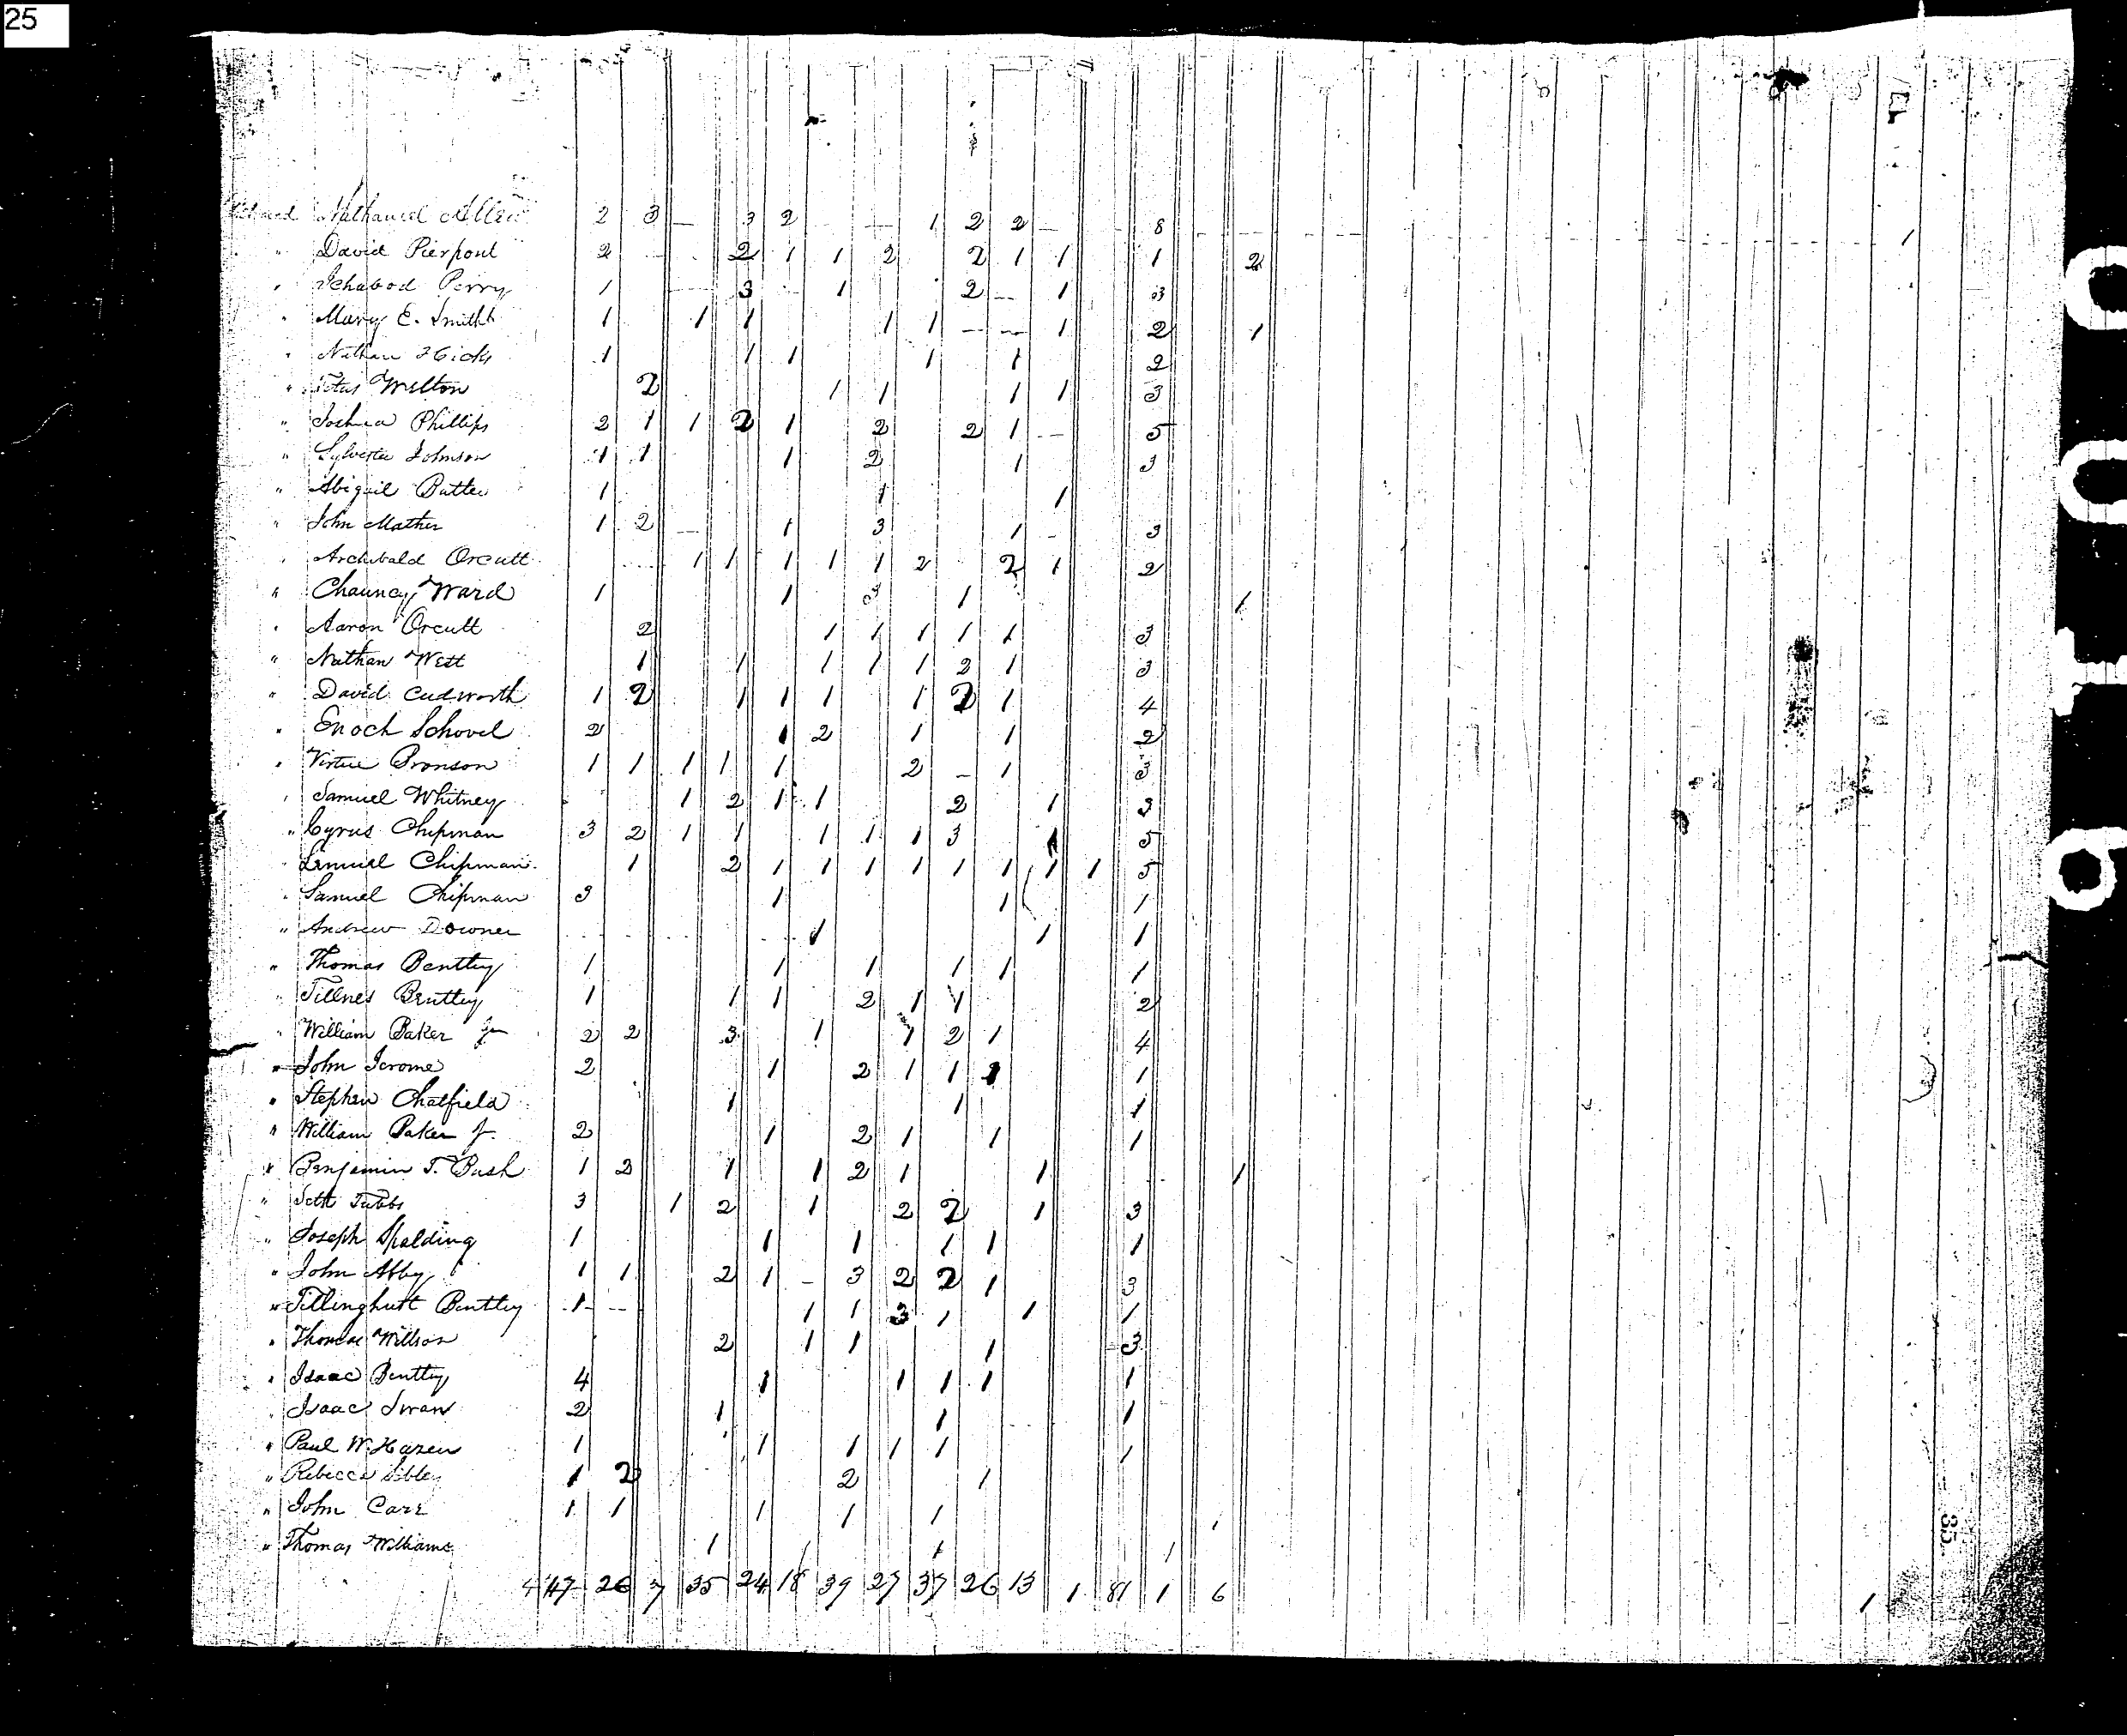 25
Nathaniel Allen 2 3 — 3 2 — 1 2 2 8 1
" David Pierpont 2 2 1 1 2 2 1 1 1 2
" Ichabod Perry 1 3 1 2 — 1 3
" Mary E. Smith 1 1 1 1 1 — — 1 2 1
" Nathan Hicks 1 1 1 1 1 2
" Titus Wilton 2 1 1 1 1 3
" Joshua Phillips 2 1 1 2 1 2 2 1 — 5
" Sylvester Johnson 1 1 1 2 1 3
" Abigail Butler 1 1 1
" John Mather 1 2 — 1 3 1 - 3
" Archibald Orcutt 1 1 1 1 1 2 2 1 2
" Chauncy Ward 1 1 3 1 1
" Aaron Orcutt 2 1 1 1 1 1 3
" Nathan West 1 1 1 1 1 2 1 3
" David Cudworth 1 2 1 1 1 1 2 1 4
" Enoch Schovel 2 1 2 1 1 2
" Virtue Bronson 1 1 1 1 1 2 - 1 3
" Samuel Whitney 1 2 1 1 2 1 3
" Cyrus Chipman 3 2 1 1 1 1 1 3 1 5
" Lemuel Chipman 1 2 1 1 1 1 1 1 1 1 5
" Samuel Chipman 3 1 1 1
" Andrew Downer 1 1 1
" Thomas Bentley 1 1 1 1 1 1
" Tillnes Bentley 1 1 1 2 1 1 2
" William Baker 2 2 3 1 1 2 1 4
" John Jerome 2 1 2 1 1 1 1
" Stephen Chatfield 1 1 1
" William Baker Jr. 2 1 2 1 1 1
" Benjamin T. Bush 1 2 1 1 2 1 1 1
" Seth Tubbs 3 1 2 1 2 2 1 3
" Joseph Spalding 1 1 1 1 1 1
" John Abby 1 1 2 1 - 3 2 2 1 3
" Tillinghust Bentley 1 1 1 3 1 1 1
" Thomas Willson 2 1 1 1 3
" Isaac Bentley 4 1 1 1 1 1
" Isaac Swan 2 1 1 1
" Paul W. Hazen 1 1 1 1 1 1
" Rebecca Sibley 1 2 2 1
" John Care 1 1 1 1 1 1
" Thomas Williams 1 1 1 1
47 26 7 35 24 18 39 27 37 26 13 1 81 1 6 1
35